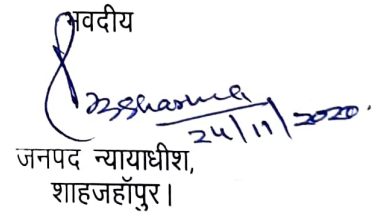 भवदीय
24/11/2020.
जनपद न्यायाधीश,
शाहजहॉपुर।